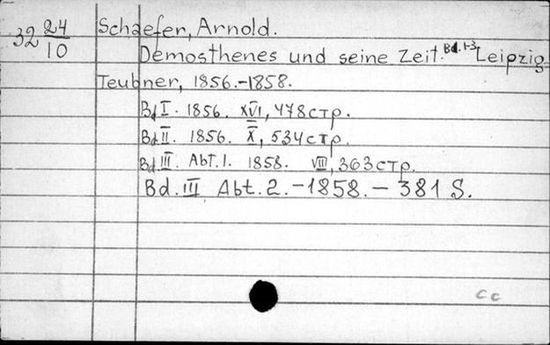 32 24/10
Schaefer, Arnold.
Demosthenes und seine Zeit. Bd. 1-3 Leipzig
Teubner, 1856.-1858.
Bd I. 1856. XVI, 478 стр.
Bd II. 1856. X, 534 стр.
Bd III. Abt. 1. 1858. VIII, 363 стр.
Bd. III Abt. 2. - 1858. - 381 S.
cc